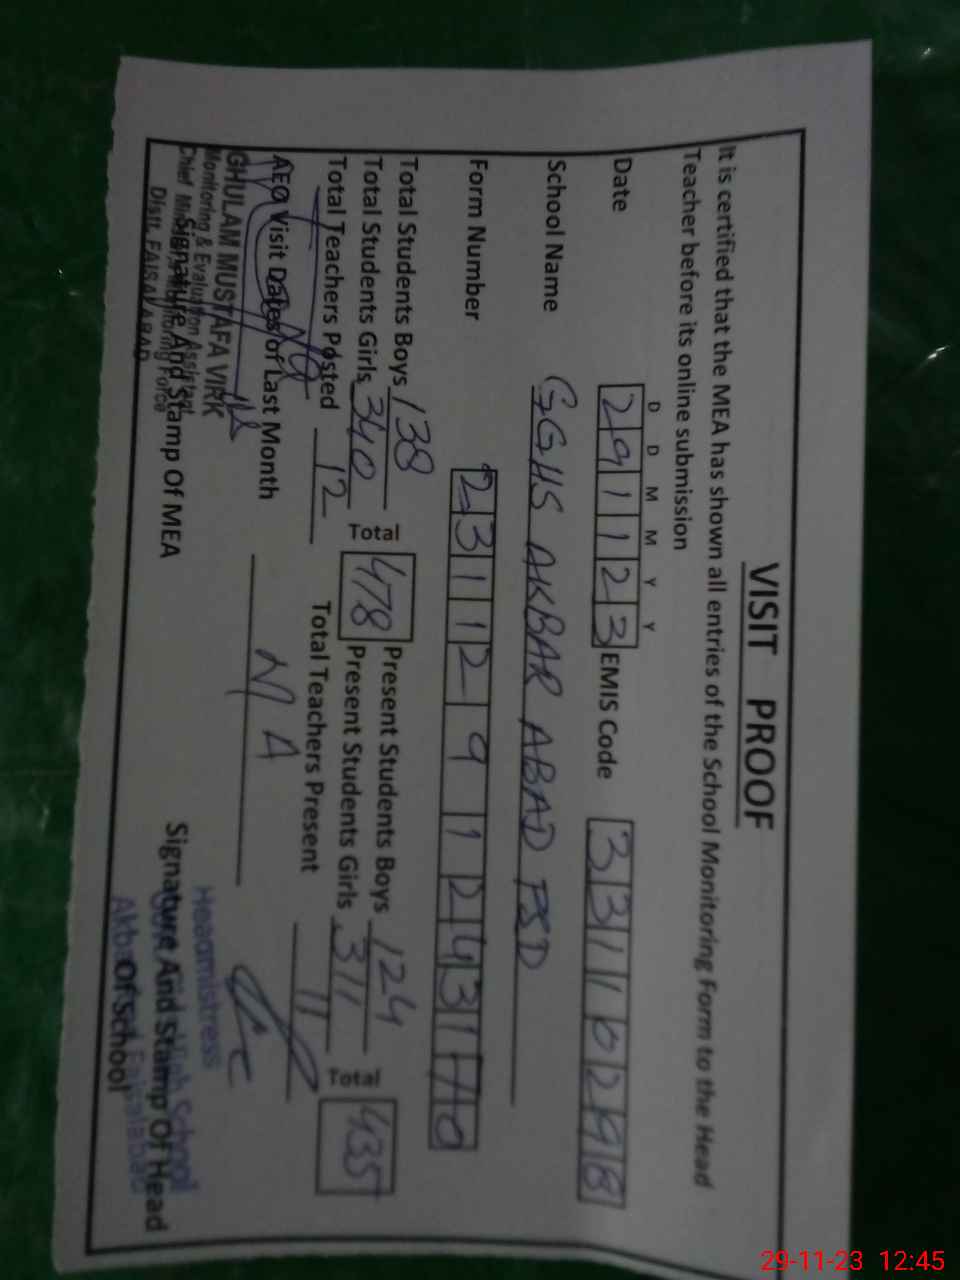 VISIT PROOF
It is certified that the MEA has shown all entries of the School Monitoring Form to the Head
Teacher before its online submission
D D M M Y Y
Date 291123 EMIS Code 33110298
School Name GGHS AKBAR ABAD FSD
Form Number 23112912431
Total Students Boys 138 Present Students Boys 124
Total Students Girls 340 Total 478 Present Students Girls 311 Total 435
Total Teachers Posted 12 Total Teachers Present 11
AEO Visit Dates of Last Month N A
GHULAM MUSTAFA VIRK
Monitoring & Evaluation Assistant
Chief Monitoring Force
Distt. FAISALABAD
Signature And Stamp Of MEA
Headmistress
High School
Faisalabad
Signature And Stamp Of Head
Of School
29-11-23 12:45